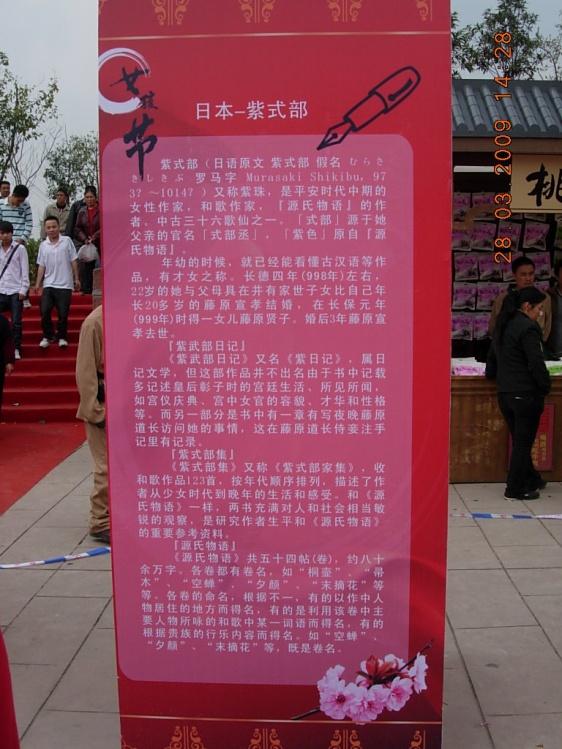 女孩节
日本-紫式部
紫式部（日语原文 紫式部 假名 むらさ
きしきぶ 罗马字 Murasaki Shikibu, 97
3? ～1014? ）又称紫珠，是平安时代中期的
女性作家，和歌作家，『源氏物语』的作
者，中古三十六歌仙之一，「式部」源于她
父亲的官名「式部丞」，「紫色」原自『源
氏物语』。
年幼的时候，就已经能看懂古汉语等作
品，有才女之称。长德四年(998年)左右，
22岁的她与父母具在并有家世子女比自己年
长20多岁的藤原宣孝结婚，在长保元年
(999年)时得一女儿藤原贤子。婚后3年藤原宣
孝去世。
『紫武部日记』
《紫武部日记》又名《紫日记》，属日
记文学，但这部作品并不出名由于书中记载
多记述皇后彰子时的宫廷生活、所见所闻，
如宫仪庆典、宫中女官的容貌、才华和性格
等。而另一部分是书中有一章有写夜晚藤原
道长访问她的事情，这在藤原道长侍妾注手
记里有记录。
『紫式部集』
《紫式部集》又称《紫式部家集》，收
和歌作品123首，按年代顺序排列，描述了作
者从少女时代到晚年的生活和感受。和《源
氏物语》一样，两书充满对人和社会相当敏
锐的观察，是研究作者生平和《源氏物语》
的重要参考资料。
『源氏物语』
《源氏物语》共五十四帖(卷)，约八十
余万字。各卷都有卷名，如“桐壶”、“帚
木”、“空蝉”、“夕颜”、“末摘花”等
等。各卷的命名，根据不一，有的以作中人
物居住的地方而得名，有的是利用该卷中主
要人物所咏的和歌中某一词语而得名，有的
根据贵族的行乐内容而得名。如“空蝉”、
“夕颜”、“末摘花”等，既是卷名。
桃
28 03 2009 14:28